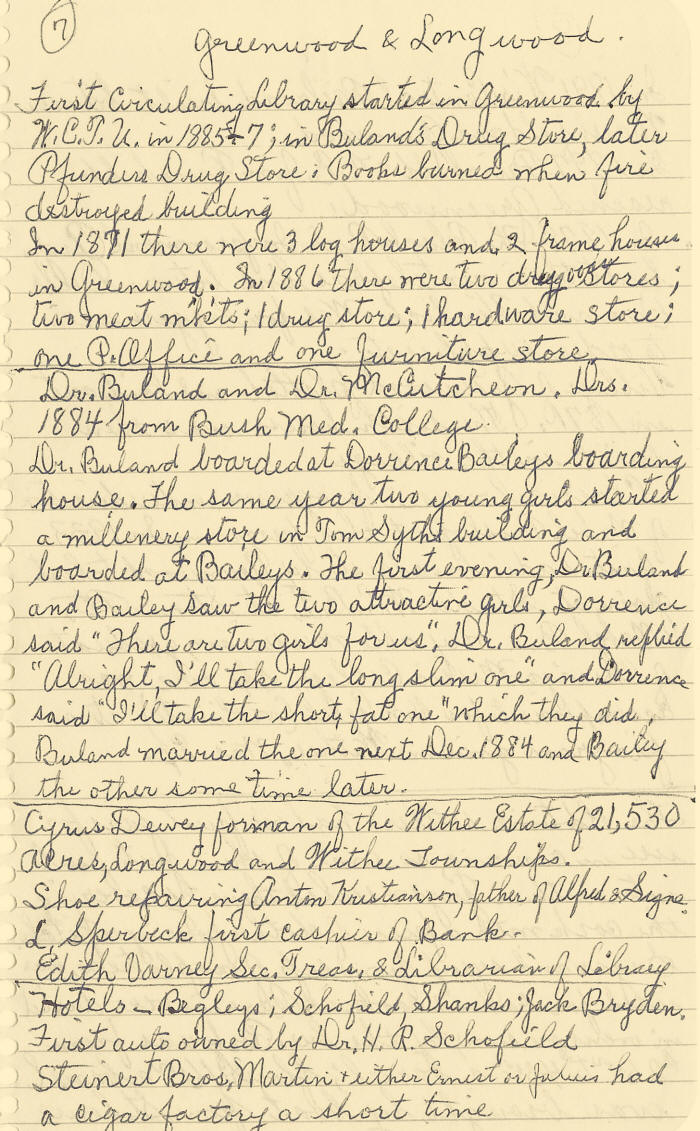 7
Greenwood & Longwood.
First Circulating Library started in Greenwood by
W.C.T.U. in 1885-7; in Buland's Drug Store, later
Pfunders Drug Store. Books burned when fire
destroyed building
In 1871 there were 3 log houses and 2 frame houses
in Greenwood. In 1886 there were two Stores;
two meat mkts; 1 drug store; 1 hardware store;
one P. Office and one furniture store.
Dr. Buland and Dr. McCutcheon. Drs.
1884 from Bush Med. College.
Dr. Buland boarded at Dorrence Baileys boarding
house. The same year two young girls started
a millenery store in Tom Syths building and
boarded at Baileys. The first evening, Dr Buland
and Bailey saw the two attractive girls, Dorrence
said "There are two girls for us", Dr. Buland replied
"Alright, I'll take the long slim one" and Dorrence
said "I'll take the short, fat one" which they did,
Buland married the one next Dec. 1884 and Bailey
the other some time later.
Cyrus Dewey forman of the Withee Estate of 21,530
acres, Longwood and Withee Townships.
Shoe repairing Anton Kristianson, father of Alfred & Signe.
L. Sperbeck first cashier of Bank.
Edith Varney Sec. Treas. & Librarian of Library
Hotels - Begleys; Schofield, Shanks; Jack Bryden.
First auto owned by Dr. H. R. Schofield
Steinert Bros, Martin + either Ernest or Julius had
a cigar factory a short time